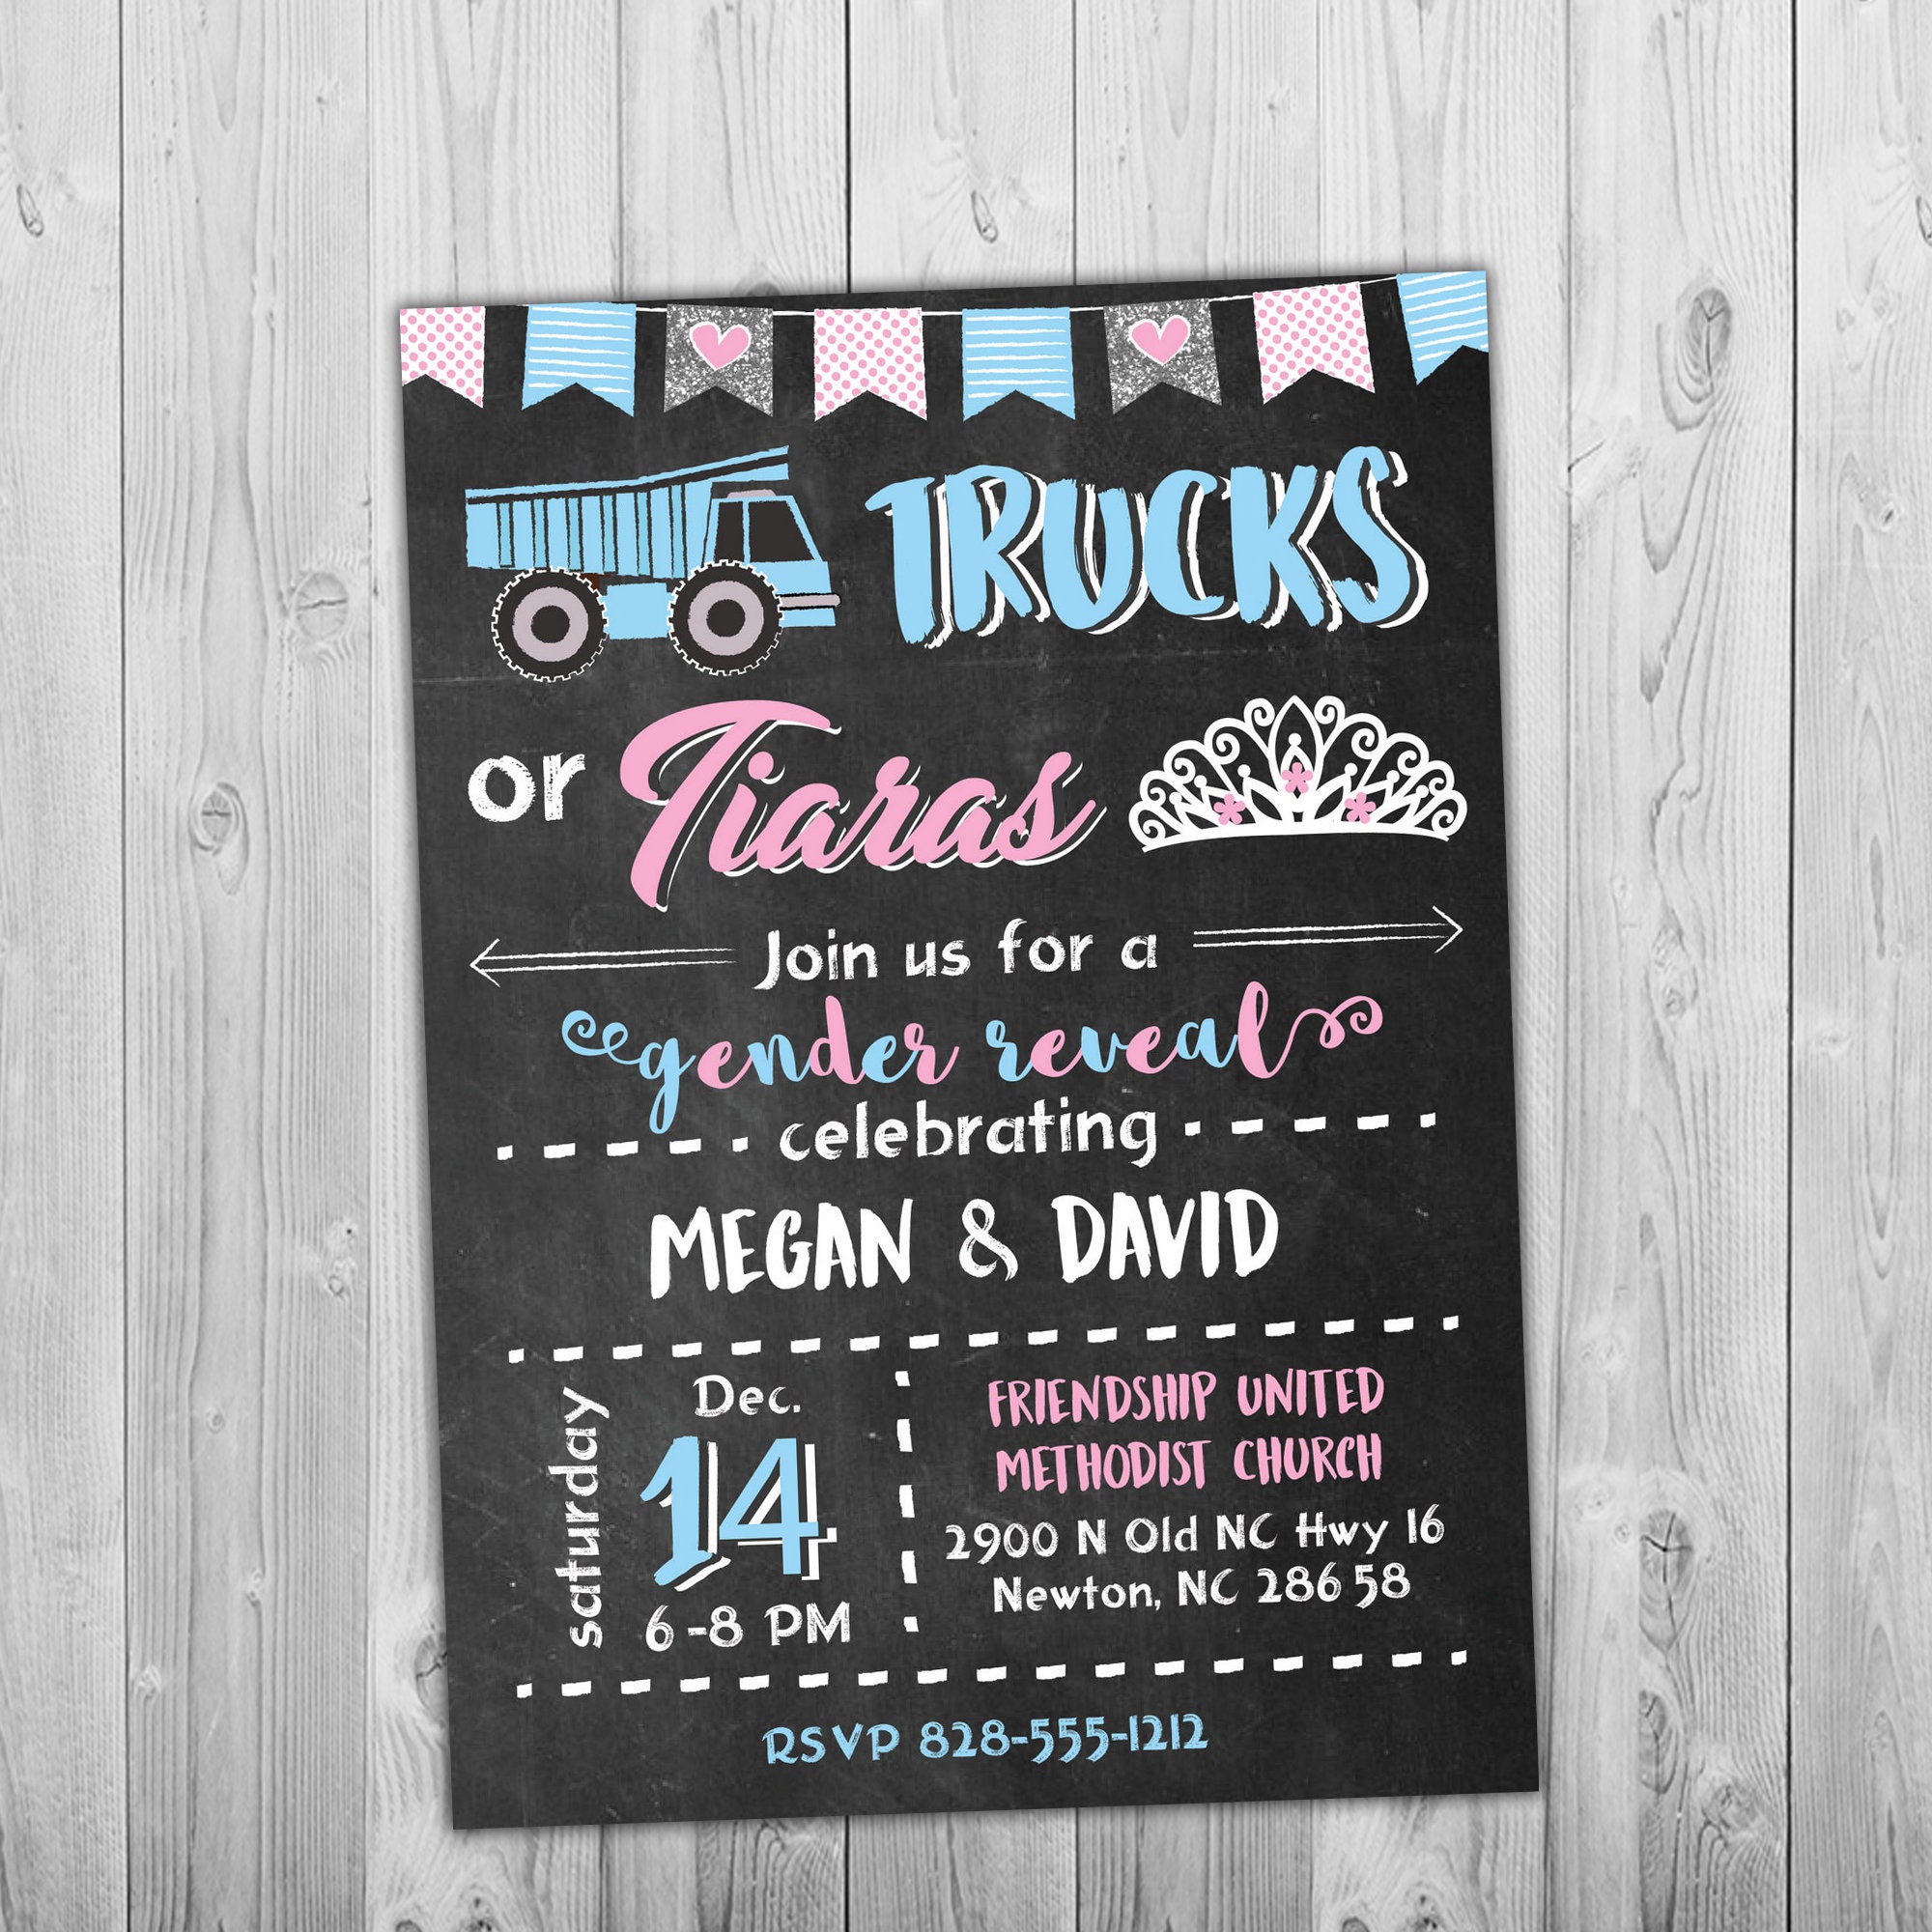 TRUCKS
or Tiaras
Join us for a
gender reveal
celebrating
MEGAN & DAVID
saturday
Dec.
14
6-8 PM
FRIENDSHIP UNITED
METHODIST CHURCH
2900 N Old NC Hwy 16
Newton, NC 28658
RSVP 828-555-1212